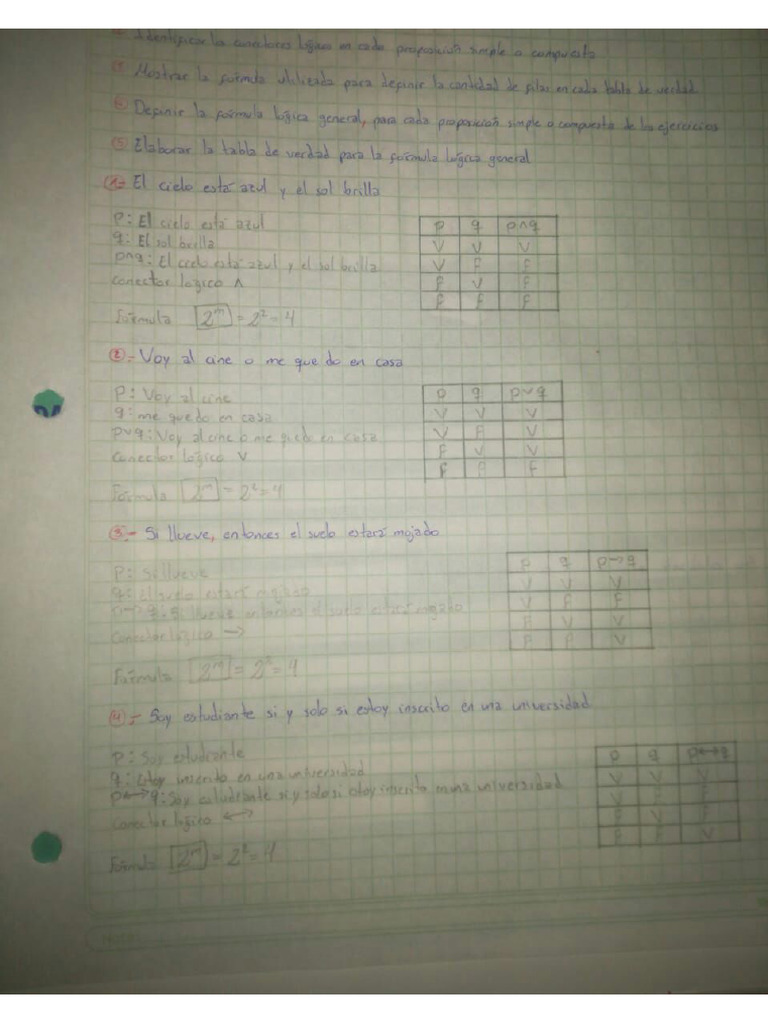 Identificar los conectores lógicos en cada proposición simple o compuesta
Mostrar la formula utilizada para definir la cantidad de filas en cada tabla de verdad
Definir la fórmula lógica general, para cada proposición simple o compuesta de los ejercicios
⑤ Elaborar la tabla de verdad para la fórmula lógica general
①- El cielo está azul y el sol brilla
P: El cielo está azul
q: El sol brilla
p∧q: El cielo está azul y el sol brilla
conector lógico ∧
p q p∧q
V V V
V F F
F V F
F F F
Fórmula 2ⁿ = 2² = 4
②- Voy al cine o me quedo en casa
P: Voy al cine
q: me quedo en casa
p∨q: Voy al cine o me quedo en casa
Conector lógico V
p q p∨q
V V V
V F V
F V V
F F F
Fórmula 2ⁿ = 2² = 4
③- Si llueve, entonces el suelo estará mojado
P: Si llueve
q: El suelo estará mojado
p→q: Si llueve entonces el suelo estará mojado
Conector lógico →
p q p→q
V V V
V F F
F V V
F F V
Fórmula 2ⁿ = 2² = 4
④- Soy estudiante si y solo si estoy inscrito en una universidad
p: Soy estudiante
q: Estoy inscrito en una universidad
p↔q: Soy estudiante si y solo si estoy inscrito en una universidad
Conector lógico ↔
p q p↔q
V V V
V F F
F V F
F F V
Fórmula 2ⁿ = 2² = 4